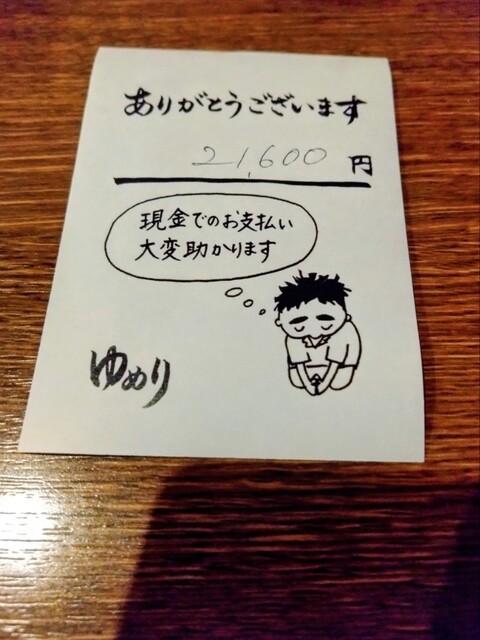 ありがとうございます
21,600 円
現金でのお支払い
大変助かります
ゆめり